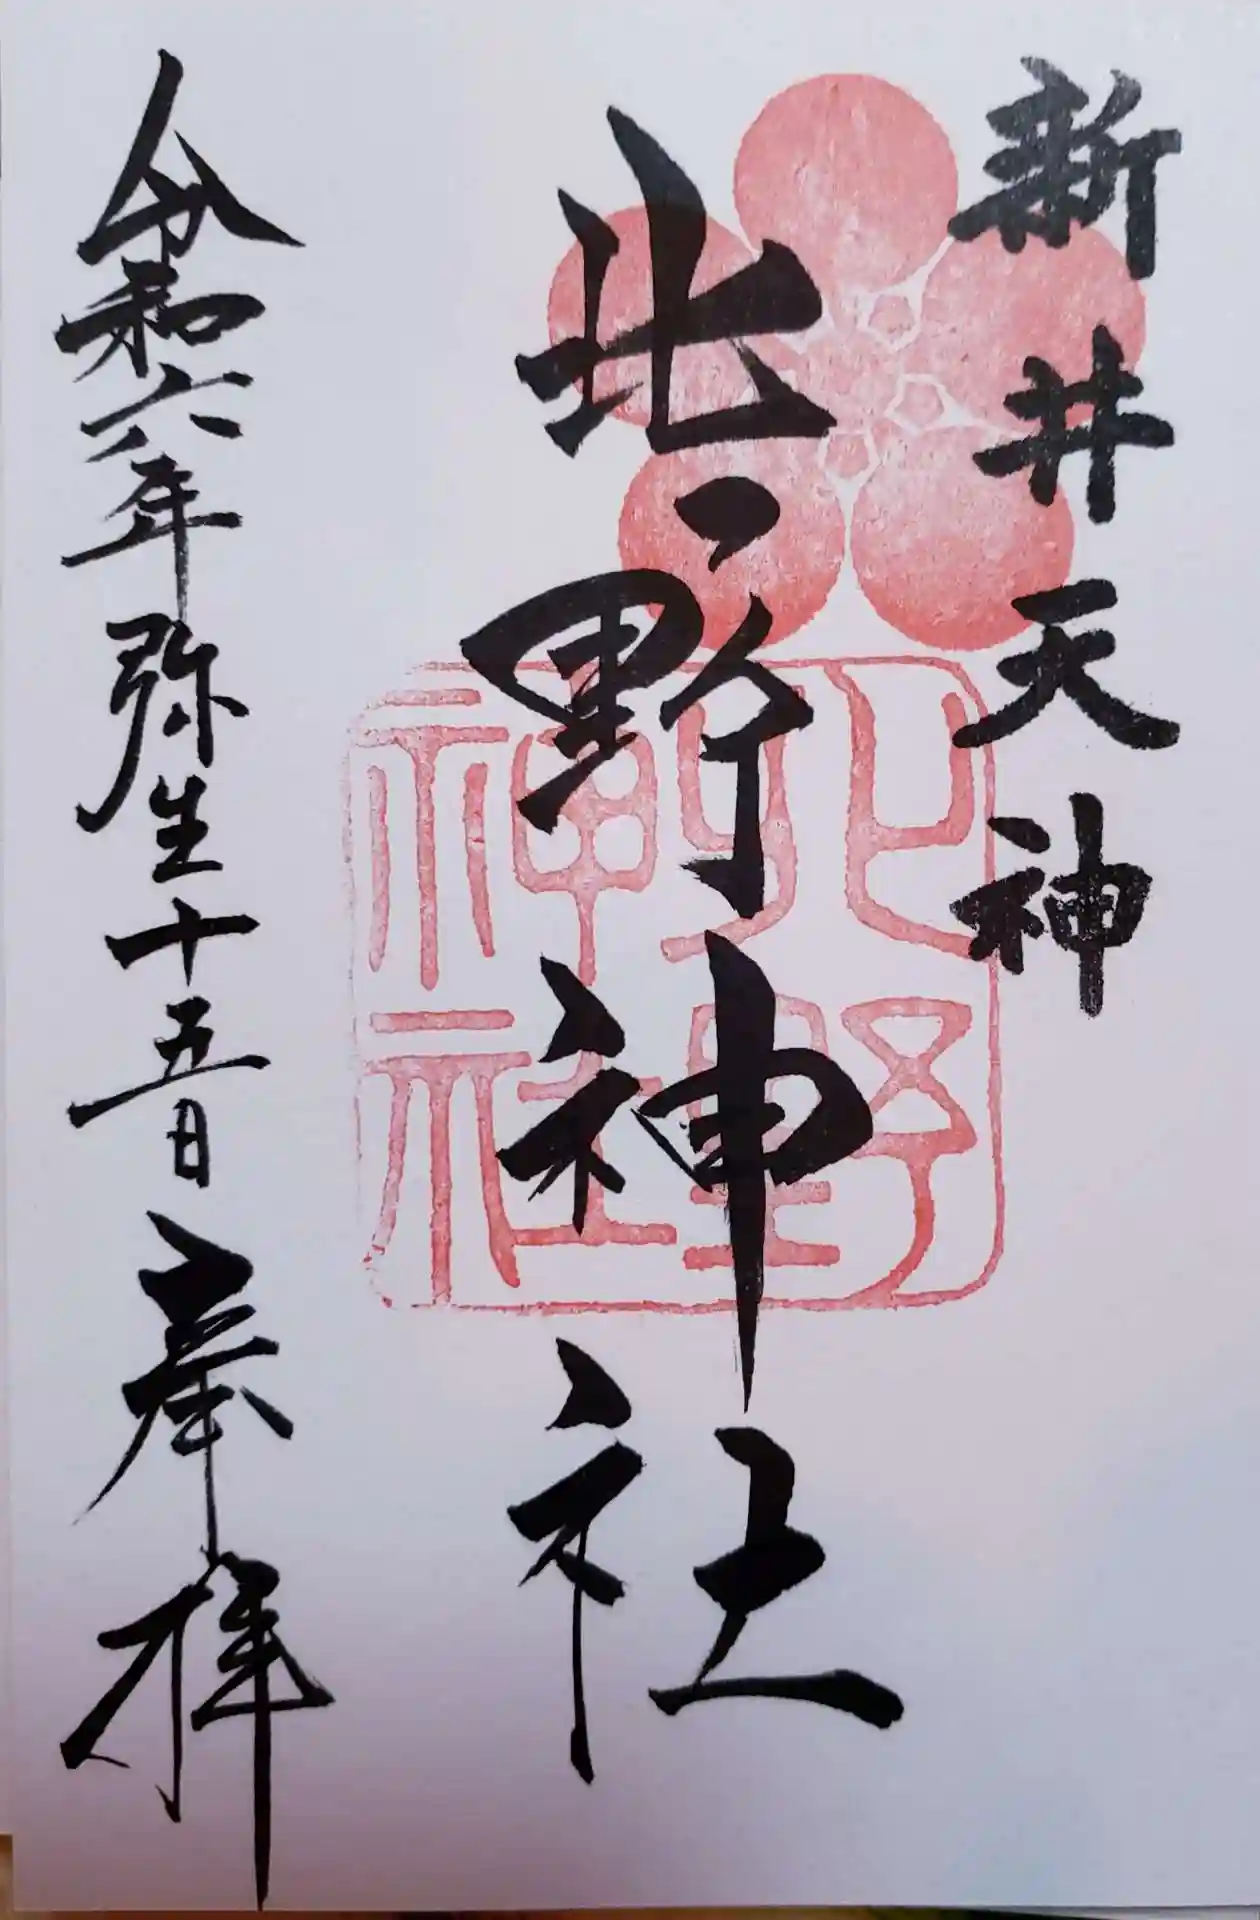 新井天神
北野神社
北野
神社
令和六年弥生十五日奉拝